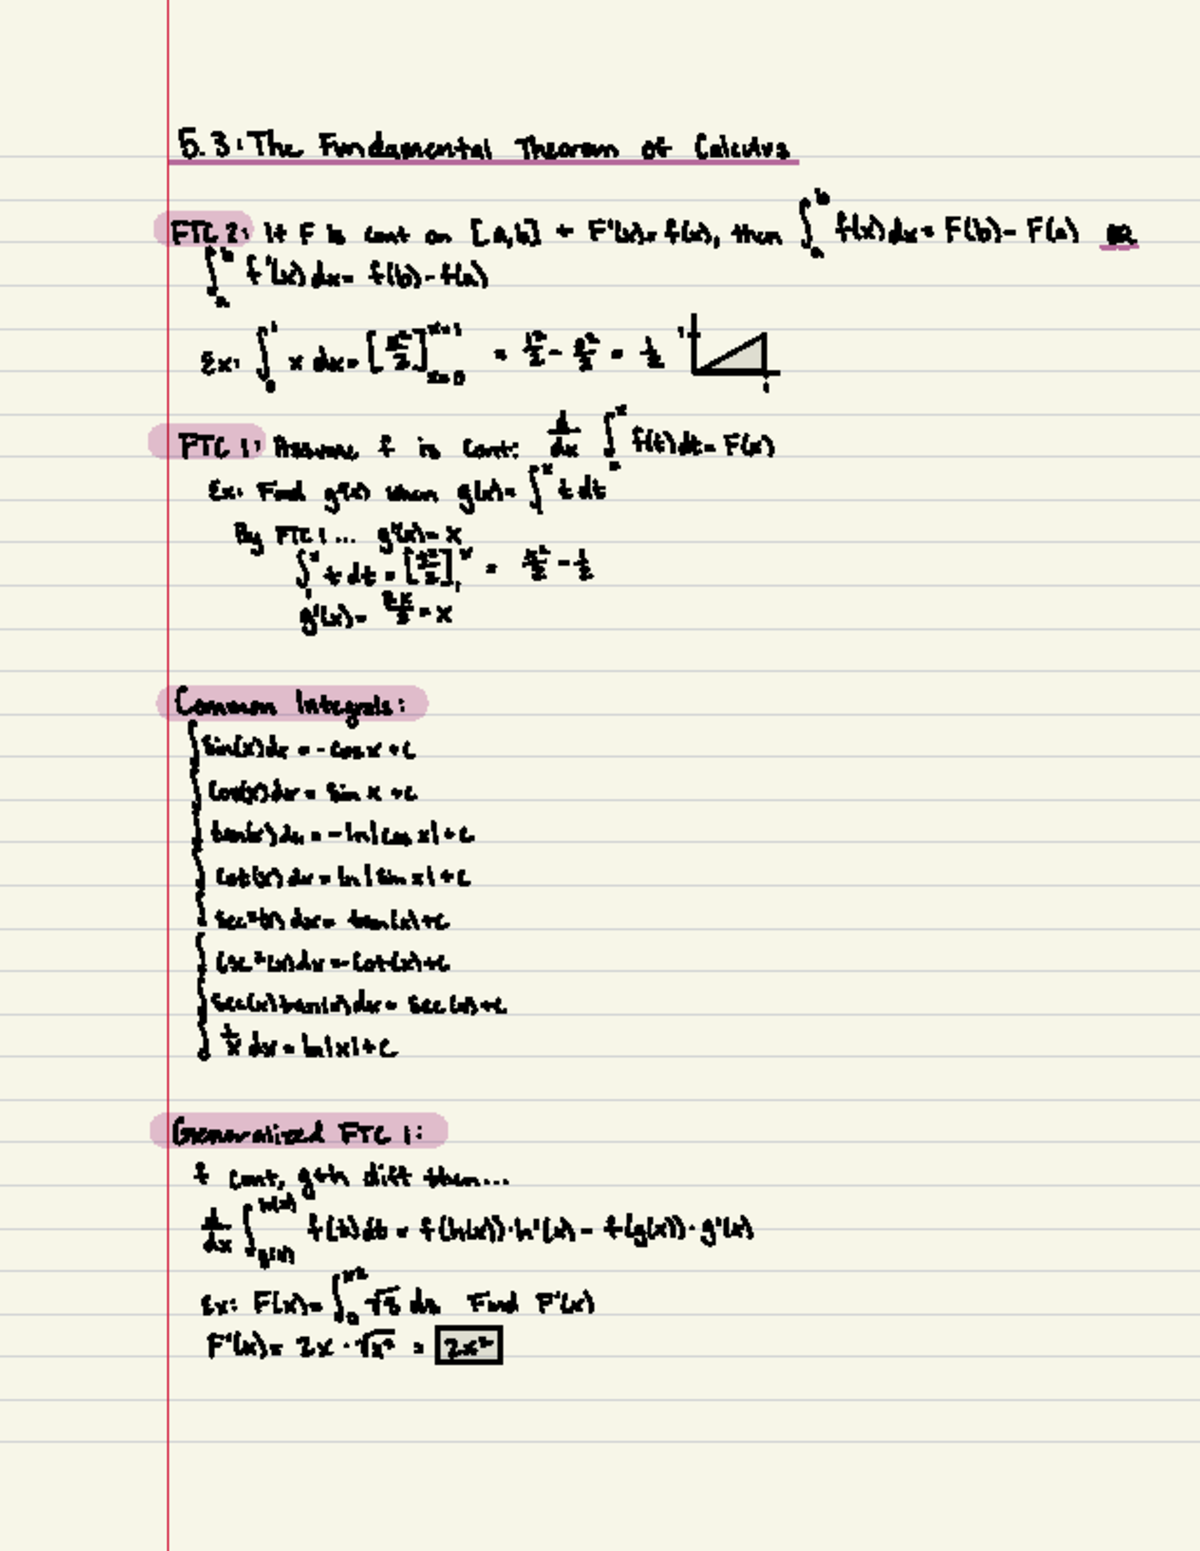 5.3: The Fundamental Theorem of Calculus
FTC 2: If F is cont on [a,b] + F'(x)=f(x), then ∫_a^b f(x)dx = F(b)-F(a) OR
∫_a^b f'(x)dx = f(b)-f(a)
Ex: ∫_0^1 x dx = [x²/2]_{x=0}^{x=1} = 1²/2 - 0²/2 = 1/2
1
1
FTC 1: Assume f is cont: d/dx ∫_a^x f(t)dt = F(x)
Ex: Find g'(x) when g(x) = ∫^x t dt
By FTC 1... g'(x) = x
∫_1^x t dt = [t²/2]_1^x = x²/2 - 1/2
g'(x) = 2x/2 = x
Common Integrals:
∫ sin(x)dx = -cos x + c
cos(x)dx = sin x + c
tan(x)dx = -ln|cos x| + c
cot(x)dx = ln|sin x| + c
sec²(x)dx = tan(x) + c
csc²(x)dx = -cot(x) + c
sec(x)tan(x)dx = sec(x) + c
1/x dx = ln|x| + c
Generalized FTC 1:
f cont, g+h diff then...
d/dx ∫_{g(x)}^{h(x)} f(t)dt = f(h(x))·h'(x) - f(g(x))·g'(x)
Ex: F(x) = ∫_0^{x²} Find F'(x)
F'(x) = 2x·√x² = 2x²